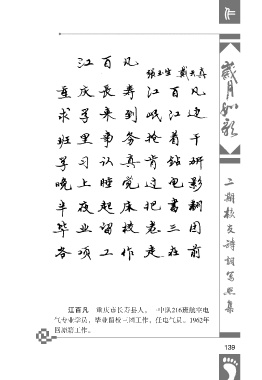 江百凡
张玉生 戴天真
重庆长寿江百凡
求学来到岷江边
班里事务抢着干
学习认真肯钻研
晚上睡觉过电影
半夜起床把书翻
毕业留校老三团
各项工作走在前
江百凡 重庆市长寿县人。一中队216班航空电
气专业学员，毕业留校三团工作，任电气员。1962年
回原籍工作。
岁月如歌
二期校友诗词写照集
139